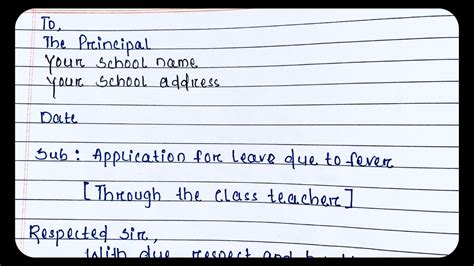 To,
The Principal
Your school name
Your school address
Date
Sub : Application for leave due to fever
[Through the class teacher]
Respected Sir,
With due respect and